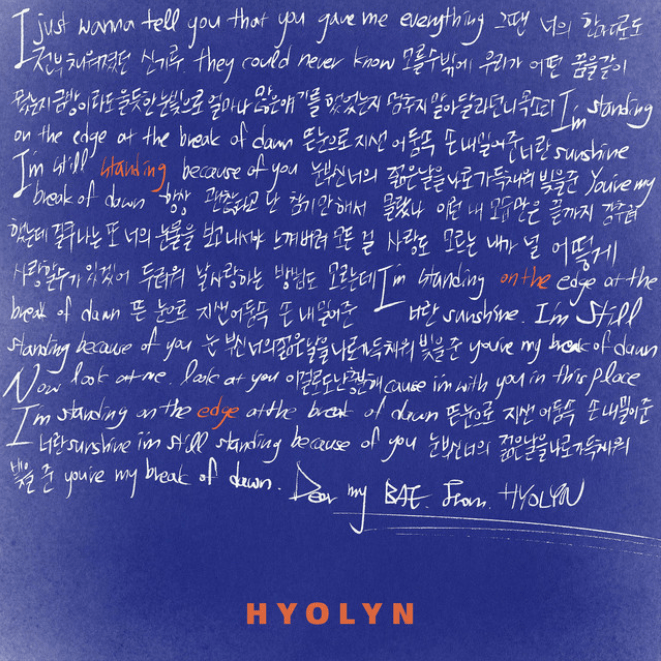 I just wanna tell you that you gave me everything 그땐 너의 한마디로도
전부 채워졌던 신기루. they could never know 모를 수밖에 우리가 어떤 꿈을 같이
꿨는지 금방이라도 울듯한 눈빛으로 얼마나 많은 얘기를 했었는지 멈추지 말아달라던 니 목소리 I'm standing
on the edge at the break of dawn 뜬눈으로 지샌 어둠속 손 내밀어준 너란 sunshine
I'm still standing because of you 눈부신 너의 젊은날을 나로 가득채워 빛을 준 You're my
break of dawn 항상 괜찮다고 난 참기만 해서 몰랐나 이런 내 모습만은 끝까지 감추려
했는데 결국 나는 또 너의 눈물을 보고 내서야 느껴버려 모든 걸 사랑도 모르는 내가 널 어떻게
사랑할수가 있겠어 두려워 날 사랑하는 방법도 모르는데 I'm standing on the edge at the
break of dawn 뜬 눈으로 지샌 어둠속 손 내밀어준 너란 sunshine. I'm Still
standing because of you 눈 부신 너의 젊은날을 나로 가득채워 빛을 준 you're my break of dawn
Now look at me. look at you 이걸로도 난 행복해 cause i'm with you in this place
I'm standing on the edge at the break of dawn 뜬눈으로 지샌 어둠속 손 내밀어준
너란 sunshine i'm still standing because of you 눈부신 너의 젊은날을 나로 가득채워
빛을 준 you're my break of dawn. Dear my BAE. From. HYOLYN
HYOLYN